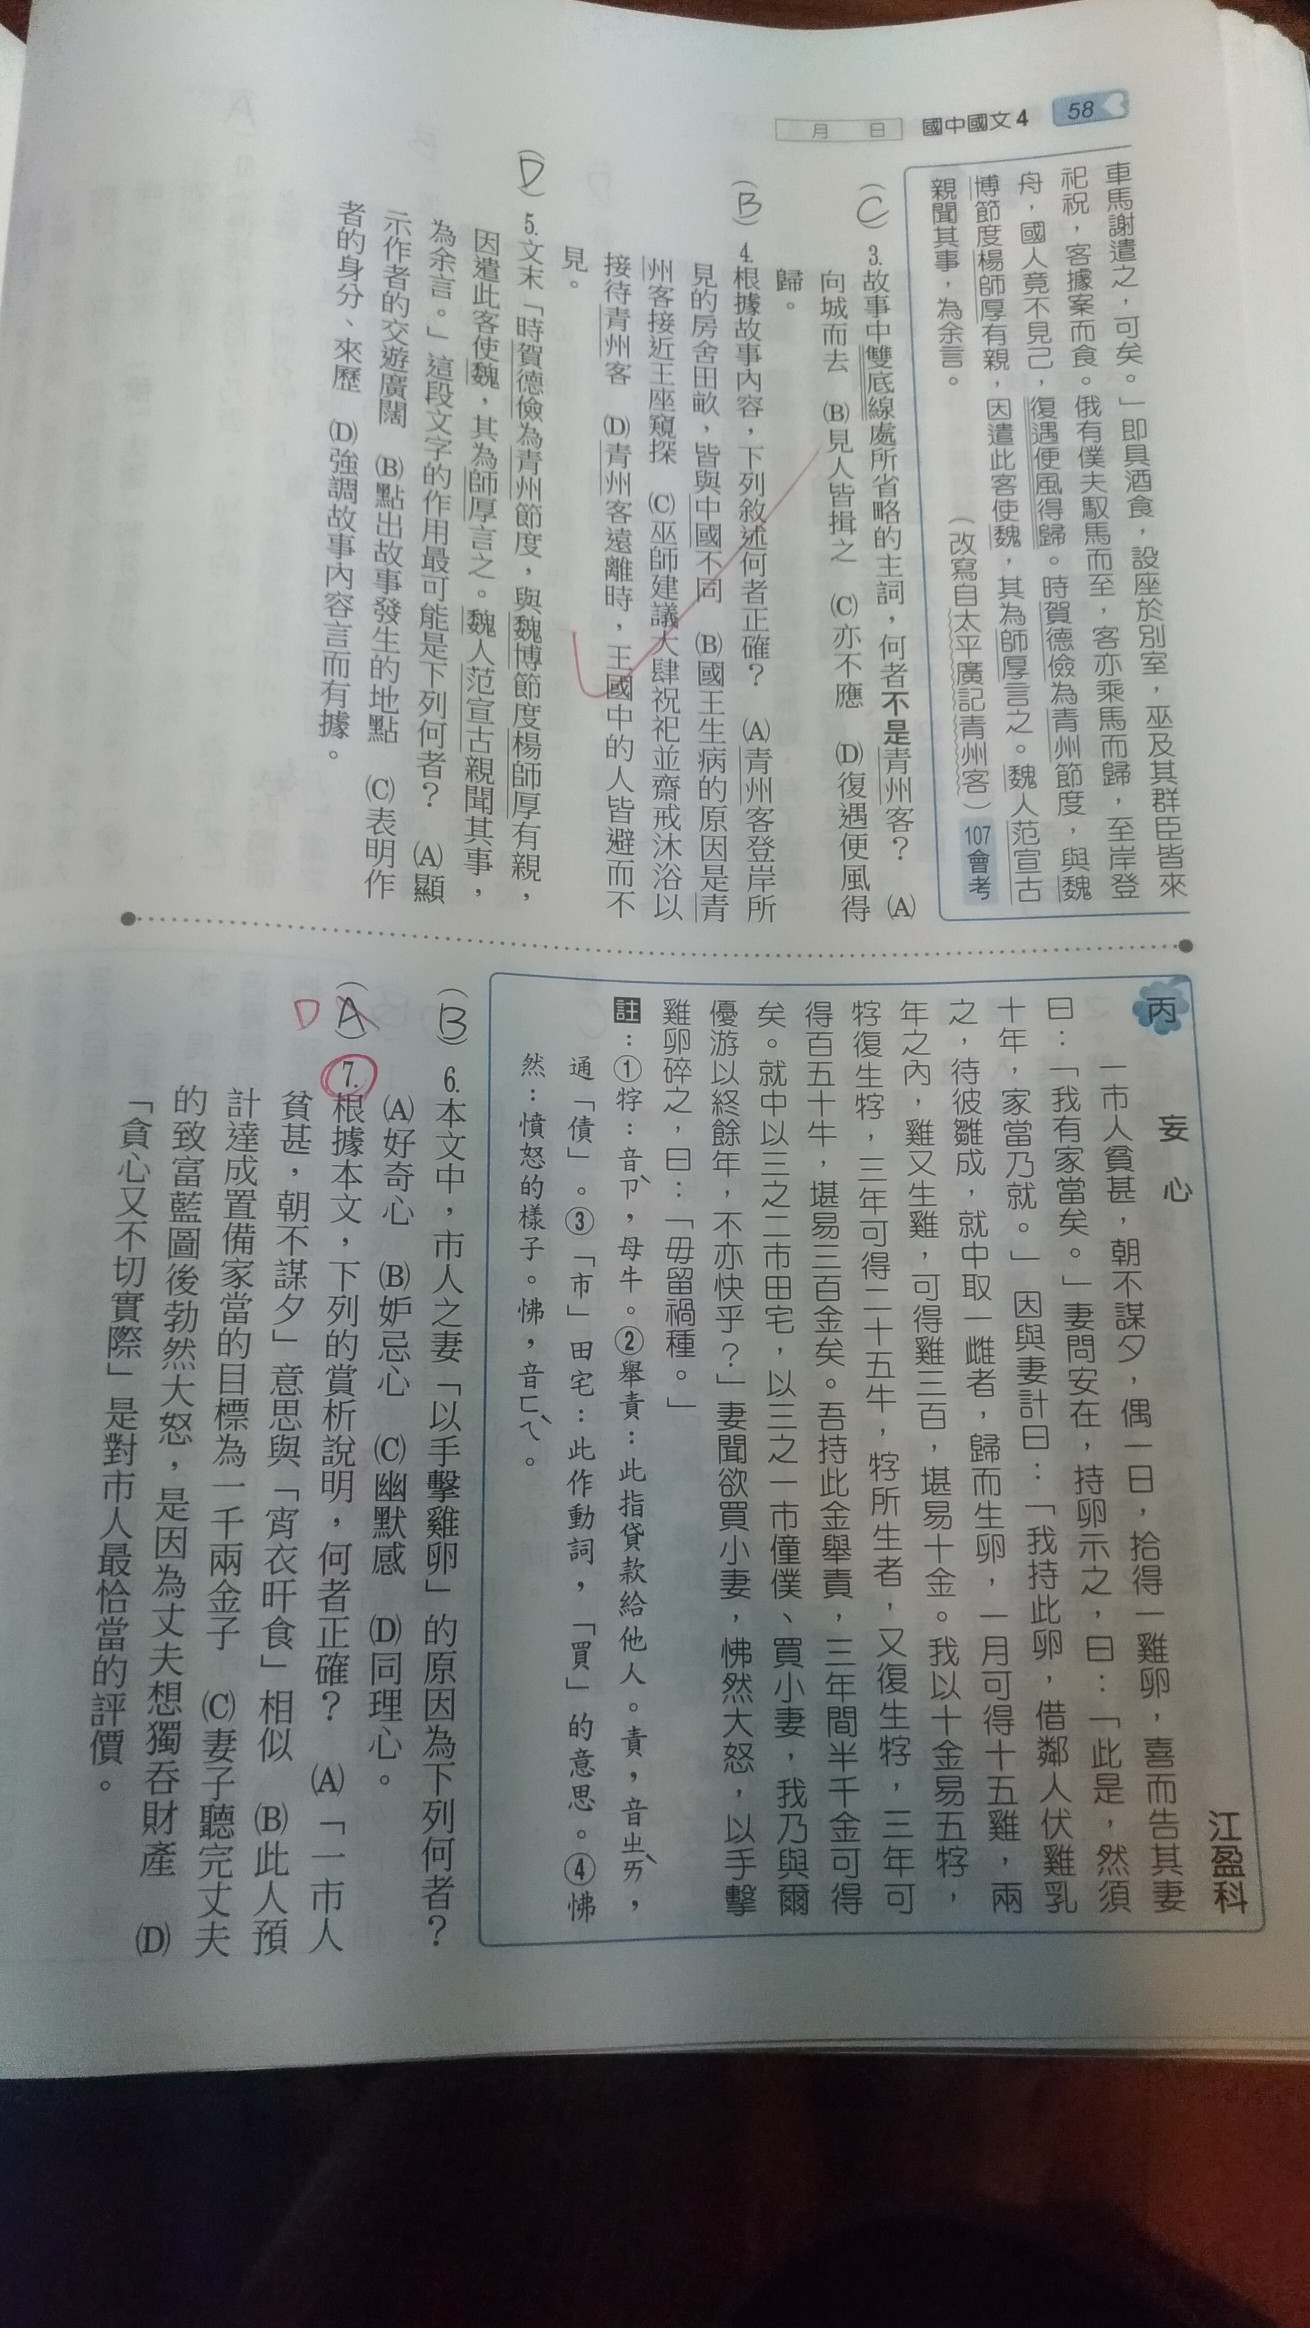 58
國中國文4
月 日
車馬謝遣之，可矣。」即具酒食，設座於別室，巫及其群臣皆來
祀祝，客據案而食。俄有僕夫馭馬而至，客亦乘馬而歸，至岸登
舟，國人竟不見己，復遇便風得歸。時賀德儉為青州節度，與魏
博節度楊師厚有親，因遣此客使魏，其為師厚言之。魏人范宣古
親聞其事，為余言。
（改寫自太平廣記青州客）107會考
（C）3.故事中雙底線處所省略的主詞，何者不是青州客？ (A)
向城而去 (B)見人皆揖之 (C)亦不應 (D)復遇便風得
歸。
（B）4.根據故事內容，下列敘述何者正確？ (A)青州客登岸所
見的房舍田畝，皆與中國不同 (B)國王生病的原因是青
州客接近王座窺探 (C)巫師建議大肆祝祀並齋戒沐浴以
接待青州客 (D)青州客遠離時，王國中的人皆避而不
見。
（D）5.文末「時賀德儉為青州節度，與魏博節度楊師厚有親，
因遣此客使魏，其為師厚言之。魏人范宣古親聞其事，
為余言。」這段文字的作用最可能是下列何者？ (A)顯
示作者的交遊廣闊 (B)點出故事發生的地點 (C)表明作
者的身分、來歷 (D)強調故事內容言而有據。
丙 妄心 江盈科
一市人貧甚，朝不謀夕，偶一日，拾得一雞卵，喜而告其妻
曰：「我有家當矣。」妻問安在，持卵示之，曰：「此是，然須
十年，家當乃就。」因與妻計曰：「我持此卵，借鄰人伏雞乳
之，待彼雛成，就中取一雌者，歸而生卵，一月可得十五雞，兩
年之內，雞又生雞，可得雞三百，堪易十金。我以十金易五牸，
牸復生牸，三年可得二十五牛，牸所生者，又復生牸，三年可
得百五十牛，堪易三百金矣。吾持此金舉責，三年間半千金可得
矣。就中以三之二市田宅，以三之一市僮僕、買小妻，我乃與爾
優游以終餘年，不亦快乎？」妻聞欲買小妻，怫然大怒，以手擊
雞卵碎之，曰：「毋留禍種。」
註：①牸：音ㄗˋ，母牛。②舉責：此指貸款給他人。責，音ㄓㄞˋ，
通「債」。③「市」田宅：此作動詞，「買」的意思。④怫
然：憤怒的樣子。怫，音ㄈㄟˋ。
（B）6.本文中，市人之妻「以手擊雞卵」的原因為下列何者？
(A)好奇心 (B)妒忌心 (C)幽默感 (D)同理心。
D（A）7.根據本文，下列的賞析說明，何者正確？ (A)「一市人
貧甚，朝不謀夕」意思與「宵衣旰食」相似 (B)此人預
計達成置備家當的目標為一千兩金子 (C)妻子聽完丈夫
的致富藍圖後勃然大怒，是因為丈夫想獨吞財產 (D)
「貪心又不切實際」是對市人最恰當的評價。